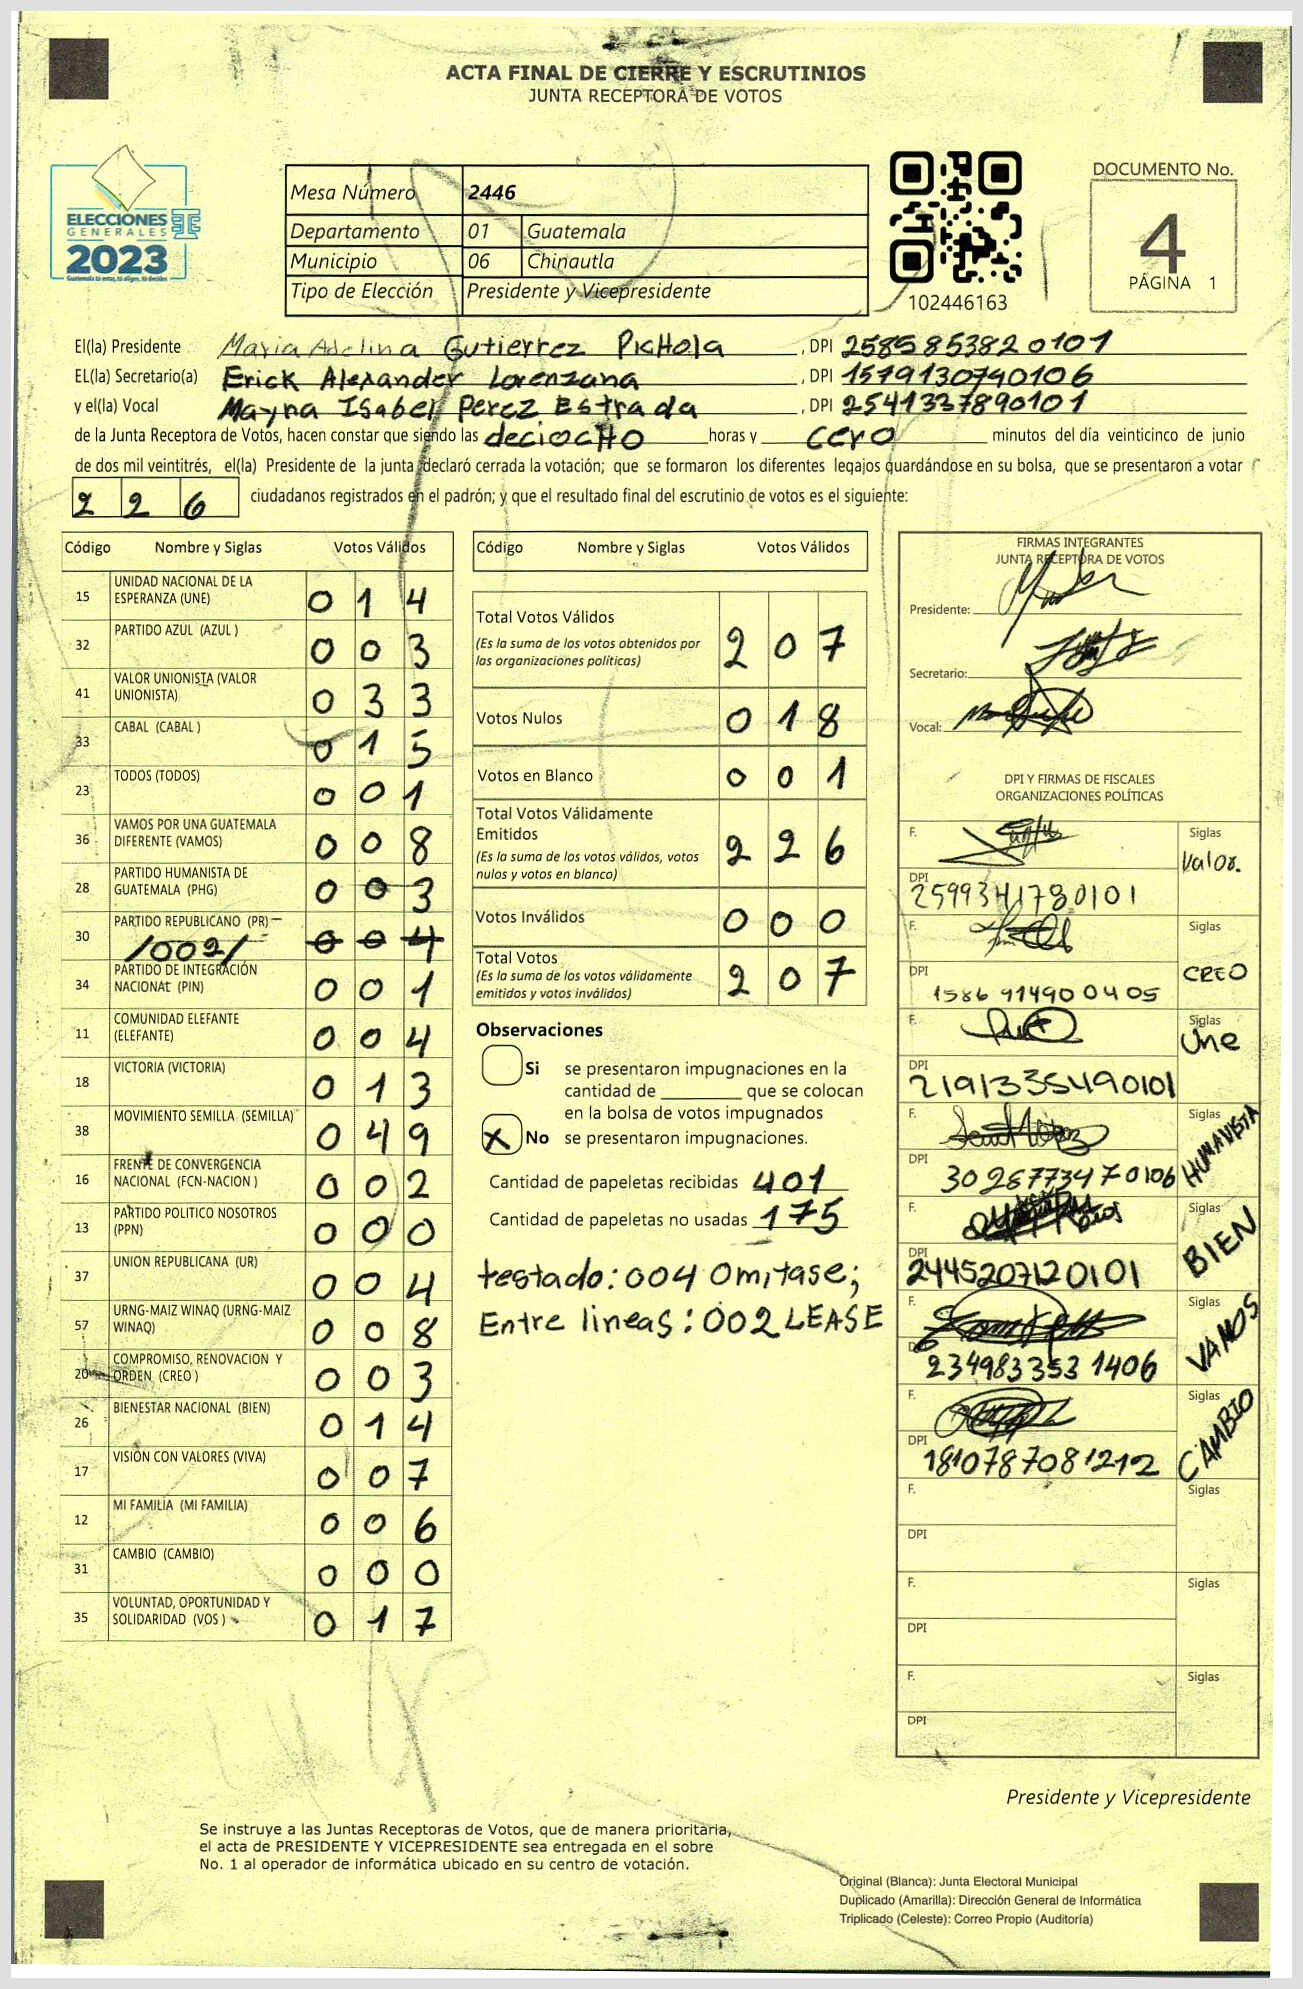 ACTA FINAL DE CIERRE Y ESCRUTINIOS
JUNTA RECEPTORA DE VOTOS
ELECCIONES
GENERALES
2023
Mesa Número 2446
Departamento 01 Guatemala
Municipio 06 Chinautla
Tipo de Elección Presidente y Vicepresidente
102446163
DOCUMENTO No.
4
PÁGINA 1
El(la) Presidente Maria Adelina Gutierrez PicHola , DPI 2585853820101
EL(la) Secretario(a) Erick Alexander Lorenzana , DPI 1579130740106
y el(la) Vocal Mayna ISabel Perez Estrada , DPI 2541337890101
de la Junta Receptora de Votos, hacen constar que siendo las deciocHo horas y cero minutos del día veinticinco de junio
de dos mil veintitrés, el(la) Presidente de la junta declaró cerrada la votación; que se formaron los diferentes legajos guardándose en su bolsa, que se presentaron a votar
2 2 6 ciudadanos registrados en el padrón; y que el resultado final del escrutinio de votos es el siguiente:
Código Nombre y Siglas Votos Válidos
15 UNIDAD NACIONAL DE LA
ESPERANZA (UNE) 0 1 4
32 PARTIDO AZUL (AZUL ) 0 0 3
41 VALOR UNIONISTA (VALOR
UNIONISTA) 0 3 3
33 CABAL (CABAL ) 0 1 5
23 TODOS (TODOS) 0 0 1
36 VAMOS POR UNA GUATEMALA
DIFERENTE (VAMOS) 0 0 8
28 PARTIDO HUMANISTA DE
GUATEMALA (PHG) 0 0 3
30 PARTIDO REPUBLICANO (PR) 0 0 4
/002/
34 PARTIDO DE INTEGRACIÓN
NACIONAL (PIN) 0 0 1
11 COMUNIDAD ELEFANTE
(ELEFANTE) 0 0 4
18 VICTORIA (VICTORIA) 0 1 3
38 MOVIMIENTO SEMILLA (SEMILLA) 0 4 9
16 FRENTE DE CONVERGENCIA
NACIONAL (FCN-NACION ) 0 0 2
13 PARTIDO POLITICO NOSOTROS
(PPN) 0 0 0
37 UNION REPUBLICANA (UR) 0 0 4
57 URNG-MAIZ WINAQ (URNG-MAIZ
WINAQ) 0 0 8
20 COMPROMISO, RENOVACION Y
ORDEN (CREO ) 0 0 3
26 BIENESTAR NACIONAL (BIEN) 0 1 4
17 VISIÓN CON VALORES (VIVA) 0 0 7
12 MI FAMILIA (MI FAMILIA) 0 0 6
31 CAMBIO (CAMBIO) 0 0 0
35 VOLUNTAD, OPORTUNIDAD Y
SOLIDARIDAD (VOS ) 0 1 7
Código Nombre y Siglas Votos Válidos
Total Votos Válidos 2 0 7
(Es la suma de los votos obtenidos por
las organizaciones políticas)
Votos Nulos 0 1 8
Votos en Blanco 0 0 1
Total Votos Válidamente
Emitidos 2 2 6
(Es la suma de los votos válidos, votos
nulos y votos en blanco)
Votos Inválidos 0 0 0
Total Votos 2 0 7
(Es la suma de los votos válidamente
emitidos y votos inválidos)
Observaciones
Si se presentaron impugnaciones en la
cantidad de que se colocan
en la bolsa de votos impugnados
X No se presentaron impugnaciones.
Cantidad de papeletas recibidas 401
Cantidad de papeletas no usadas 175
testado: 004 Omitase;
Entre lineas: 002 LEASE
FIRMAS INTEGRANTES
JUNTA RECEPTORA DE VOTOS
Presidente:
Secretario:
Vocal:
DPI Y FIRMAS DE FISCALES
ORGANIZACIONES POLÍTICAS
F. Siglas
Valor.
DPI
2599341780101
F. Siglas
CREO
DPI
1586 91490 0405
F. Siglas
Une
DPI
2191335490101
F. Siglas
HUMANISTA
DPI
3028773470106
F. Siglas
BIEN
DPI
2445207120101
F. Siglas
VAMOS
234983353 1406
F. Siglas
CAMBIO
DPI
1810787081212
F. Siglas
DPI
F. Siglas
DPI
F. Siglas
DPI
Presidente y Vicepresidente
Se instruye a las Juntas Receptoras de Votos, que de manera prioritaria,
el acta de PRESIDENTE Y VICEPRESIDENTE sea entregada en el sobre
No. 1 al operador de informática ubicado en su centro de votación.
Original (Blanca): Junta Electoral Municipal
Duplicado (Amarilla): Dirección General de Informática
Triplicado (Celeste): Correo Propio (Auditoría)